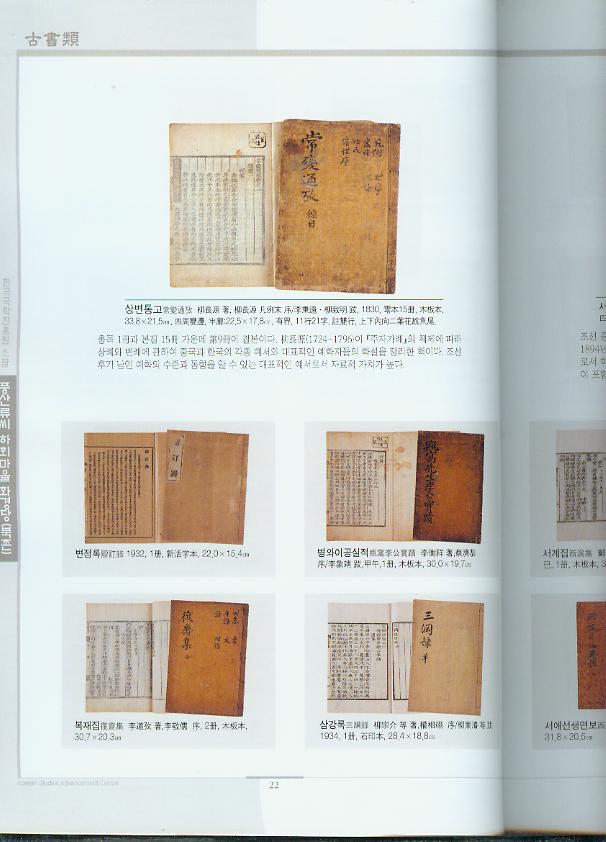 古書類
상변통고常變通攷 柳長源 著, 柳長源 凡例末 序/李秉遠·柳致明 跋, 1830, 零本15册, 木板本,
33,8×21,5㎝, 四周雙邊, 半廓:22,5×17,8㎝, 有界, 11行21字, 註雙行, 上下內向二葉花紋魚尾.
총목 1冊과 본집 15冊 가운데 第9冊이 결본이다. 柳長源(1724~1796)이 『주자가례』의 체제에 따라
상례와 변례에 관하여 중국과 한국의 각종 예서와 대표적인 예학자들의 학설을 정리한 책이다. 조선
후기 남인 예학의 수준과 동향을 알 수 있는 대표적인 예서로서 자료적 가치가 높다.
常變通攷
總目
변정록辨訂錄 1932, 1册, 新活字本, 22,0×15,4㎝
병와이공실적甁窩李公實蹟 李衡祥 著,蔡濟恭
序/李象靖 跋, 甲午,1册, 木板本, 30,0×19,7㎝
서계집西溪集
복재집復齋集 李道孜 著,李敬儒 序, 2册, 木板本,
30,7×20,3㎝
삼강록三綱錄 柳宗介 等 著,權相翊 序/柳東濬 等 跋,
1934, 1册, 石印本, 28,4×18,8㎝
서애선생연보西
31,8×20,5㎝
한국국학진흥원 소장
풍산류씨 하회마을 화경당(북촌)
Korean Studies Advancement Center
22